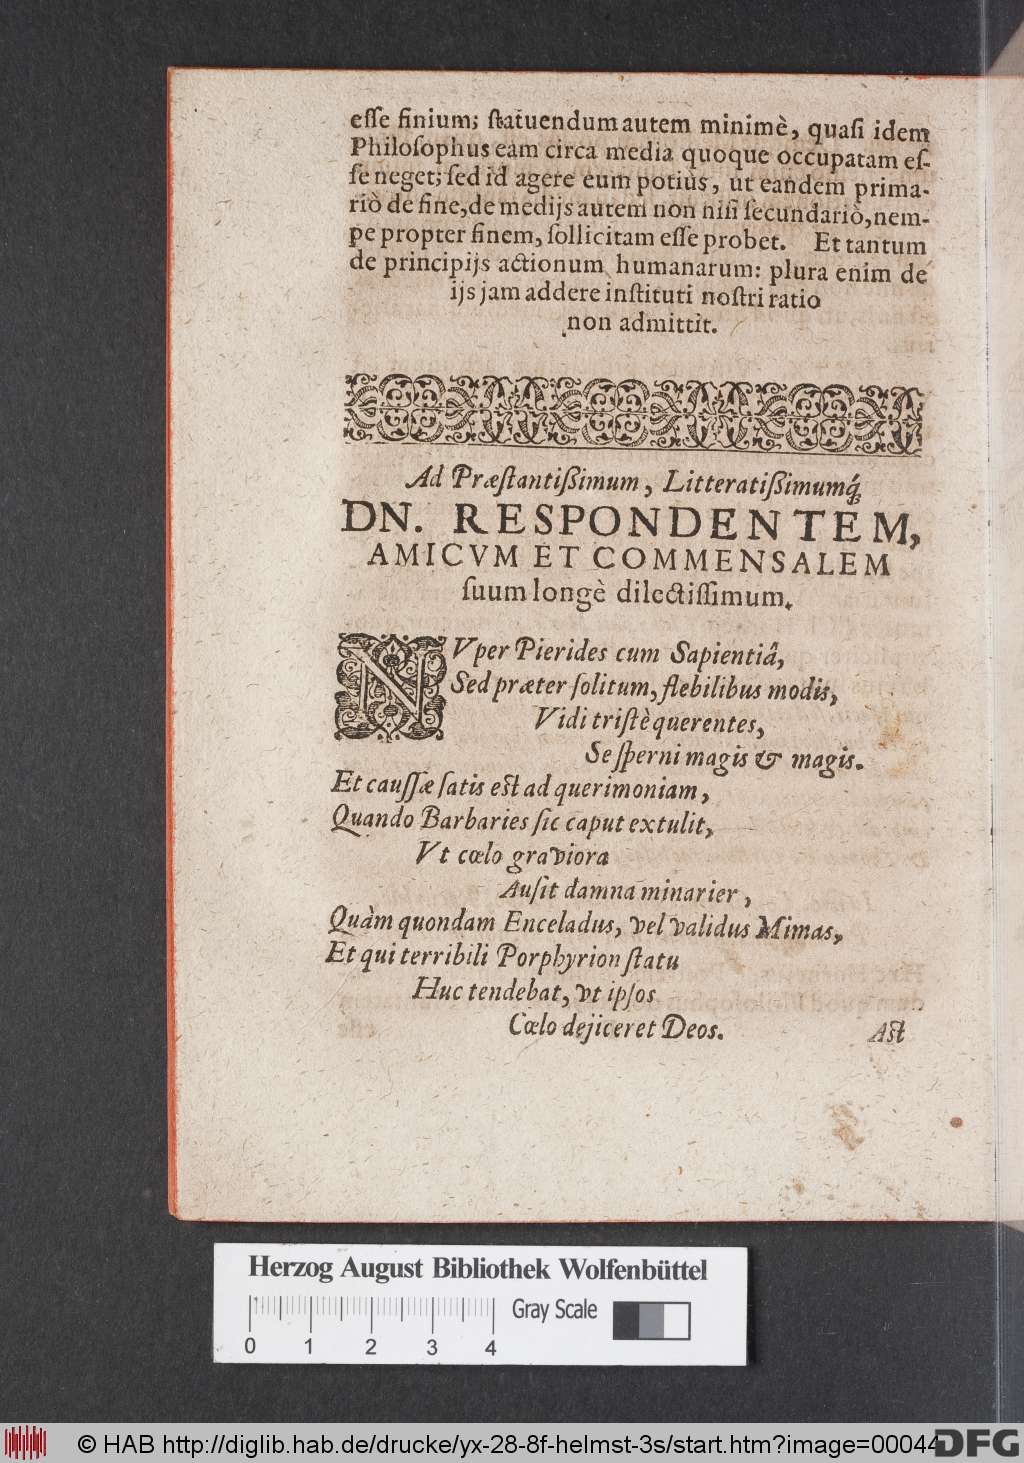 eſſe finium; ſtatuendum autem minimè, quaſi idem
Philoſophus eam circa media quoque occupatam eſ-
ſe neget; ſed id agere eum potiùs, ut eandem prima-
riò de fine, de medijs autem non niſi ſecundariò, nem-
pe propter finem, ſollicitam eſſe probet. Et tantum
de principijs actionum humanarum: plura enim de
ijs jam addere inſtituti noſtri ratio
non admittit.
Ad Præſtantißimum, Litteratißimumq́;
DN. RESPONDENTEM,
AMICVM ET COMMENSALEM
ſuum longè dilectiſſimum.
NVper Pierides cum Sapientiâ,
Sed præter ſolitum, flebilibus modis,
Vidi triſtè querentes,
Se ſperni magis & magis.
Et cauſſæ ſatis eſt ad querimoniam,
Quando Barbaries ſic caput extulit,
Vt cœlo graviora
Auſit damna minarier,
Quàm quondam Enceladus, vel validus Mimas,
Et qui terribili Porphyrion ſtatu
Huc tendebat, vt ipſos
Cœlo dejiceret Deos.
Aſt
Herzog August Bibliothek Wolfenbüttel
Gray Scale
0 1 2 3 4
© HAB http://diglib.hab.de/drucke/yx-28-8f-helmst-3s/start.htm?image=00044
DFG